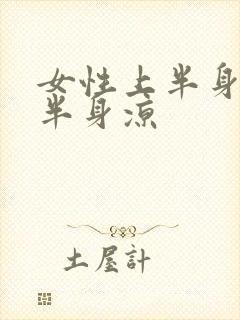 女性上半身
半身凉
土屋計